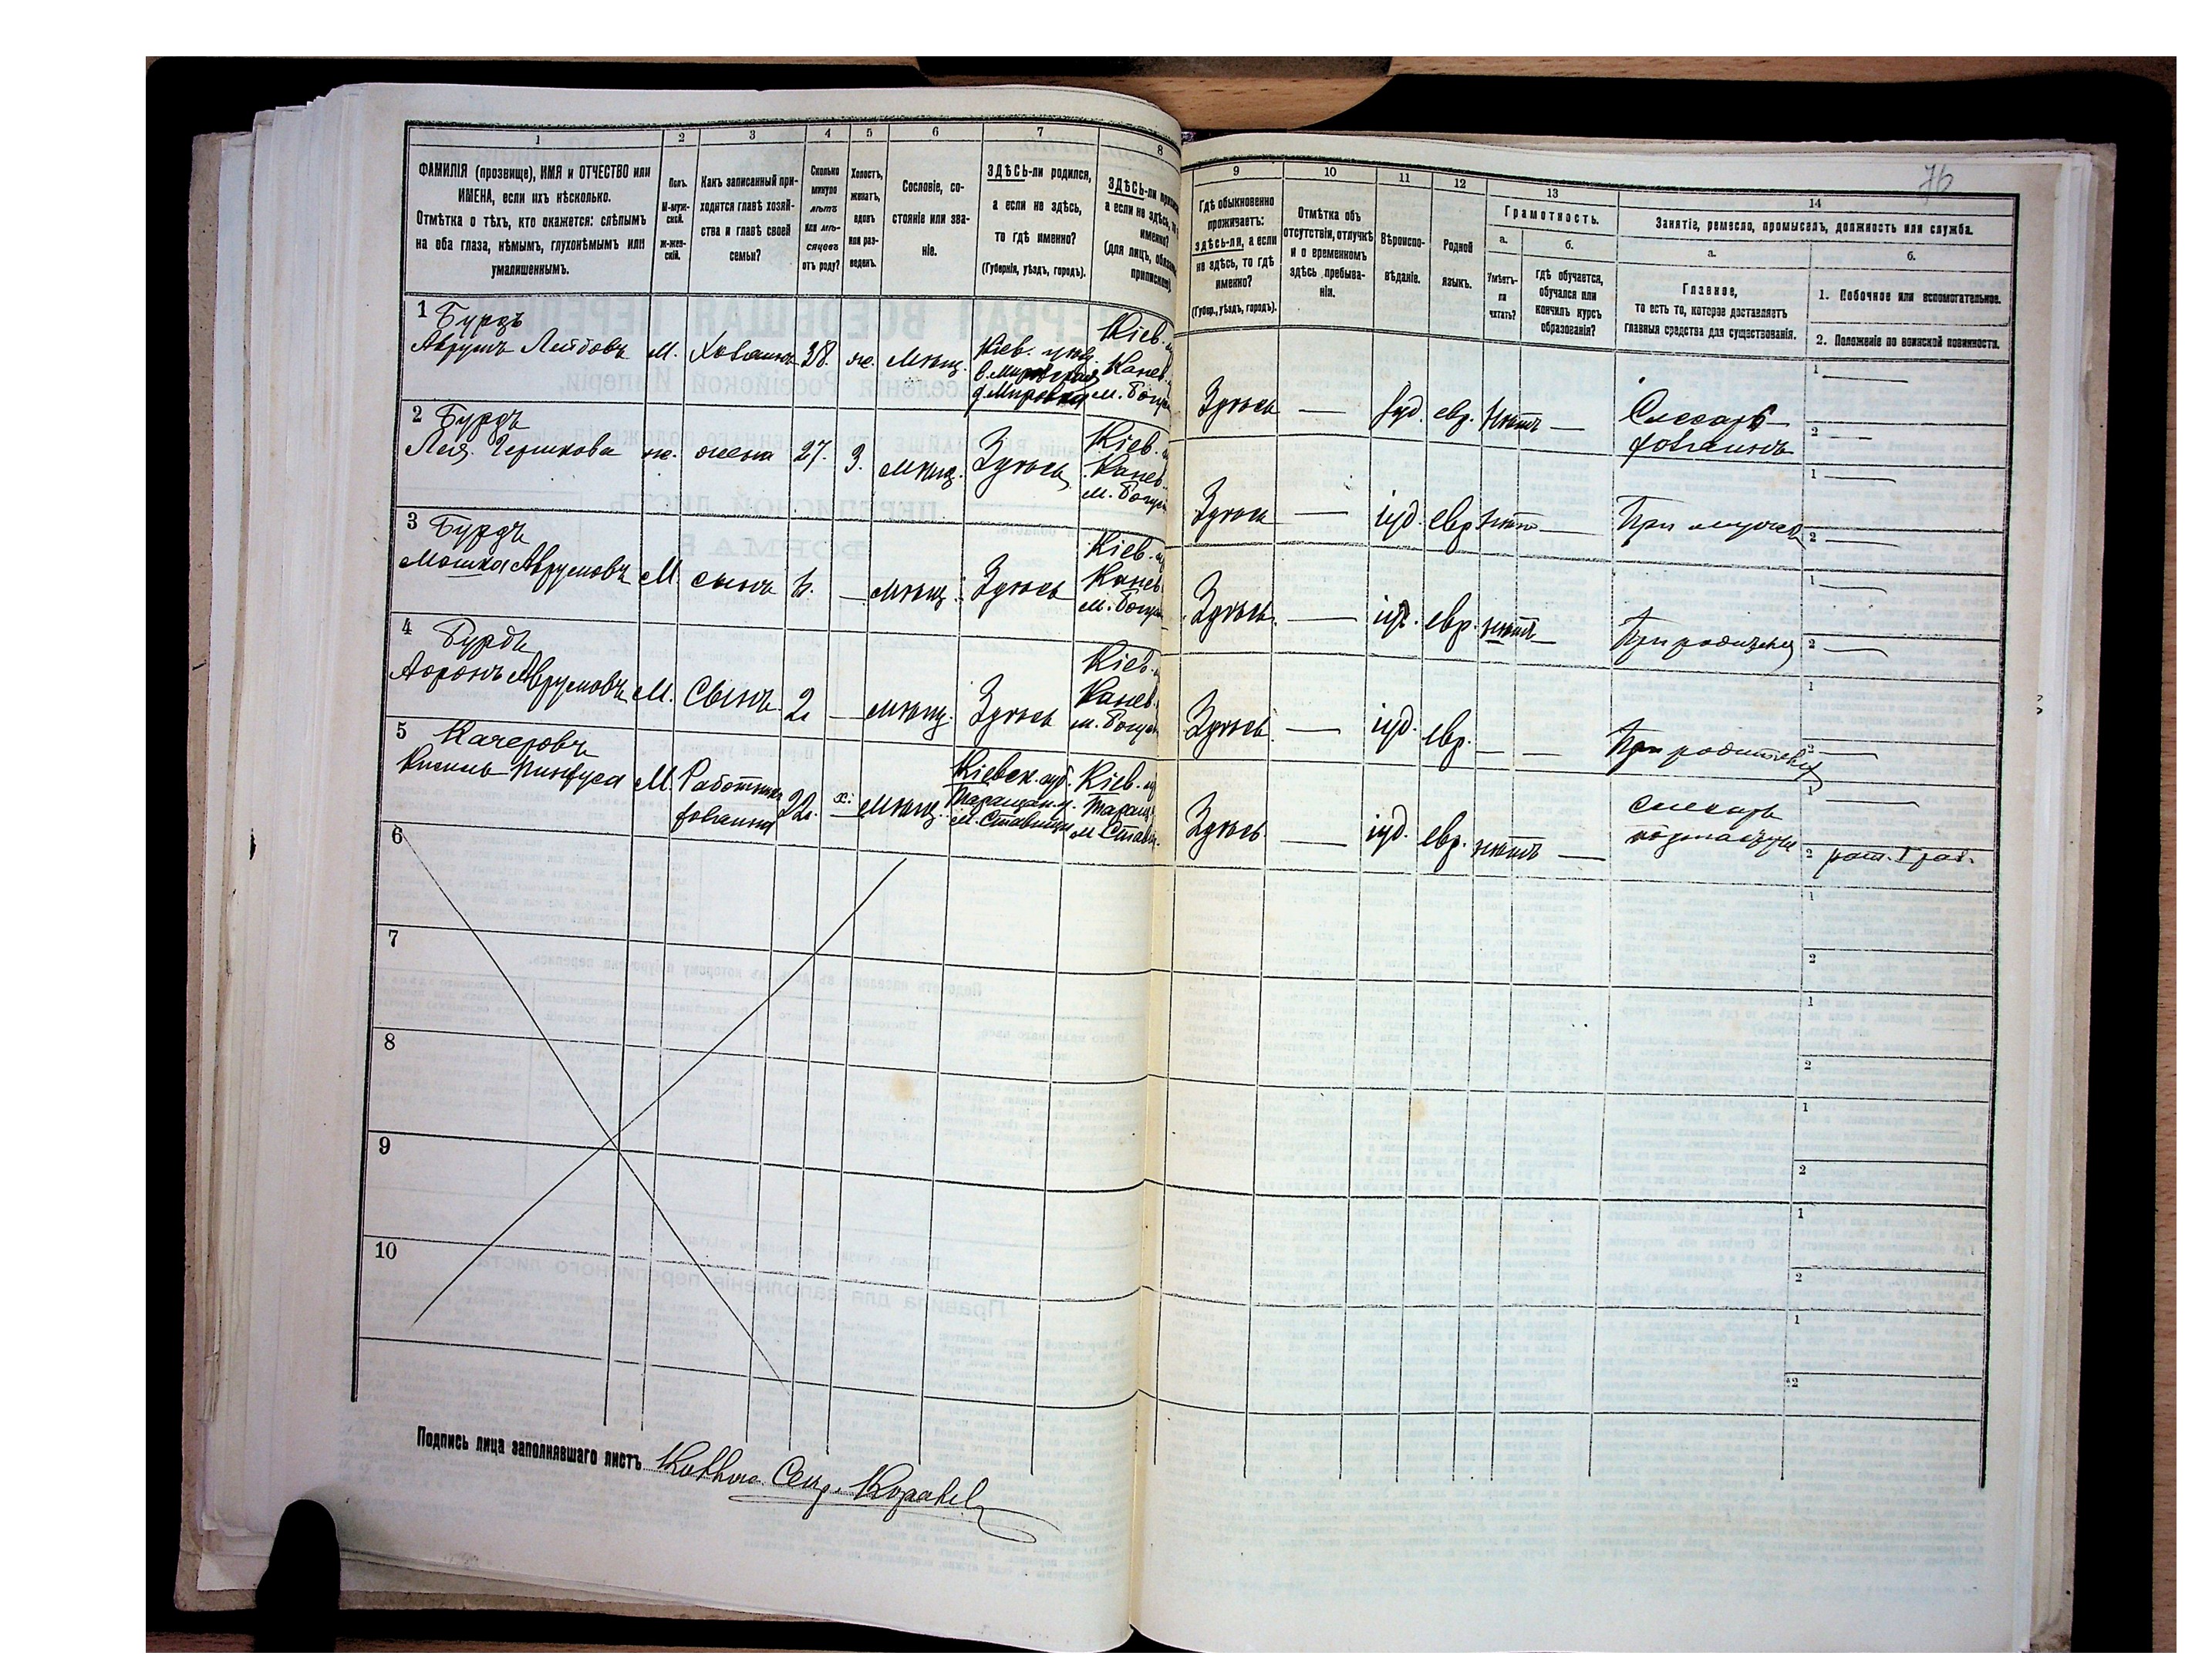 76
1 2 3 4 5 6 7 8
ФАМИЛІЯ (прозвище), ИМЯ и ОТЧЕСТВО или
ИМЕНА, если ихъ нѣсколько.
Отмѣтка о тѣхъ, кто окажется: слѣпымъ
на оба глаза, нѣмымъ, глухонѣмымъ или
умалишеннымъ.
Полъ.
М-муж-
ской.
ж-жен-
скій.
Какъ записанный при-
ходится главѣ хозяй-
ства и главѣ своей
семьи?
Сколько
минуло
лѣтъ
или мѣ-
сяцевъ
отъ роду?
Холостъ,
женатъ,
вдовъ
или раз-
веденъ.
Сословіе, со-
стояніе или зва-
ніе.
ЗДѢСЬ-ли родился,
а если не здѣсь,
то гдѣ именно?
(Губернія, уѣздъ, городъ).
ЗДѢСЬ-ли
а если не здѣсь,
именно?
(для лицъ,
9 10 11 12 13 14
Гдѣ обыкновенно
проживаетъ:
здѣсь-ли, а если
не здѣсь, то гдѣ
именно?
(Губер., уѣздъ, городъ).
Отмѣтка объ
отсутствіи, отлучкѣ
и о временномъ
здѣсь пребыва-
ніи.
Вѣроиспо-
вѣданіе.
Родной
языкъ.
Грамотность.
а.
Умѣетъ-
ли
читать?
б.
гдѣ обучается,
обучался или
кончилъ курсъ
образованія?
Занятіе, ремесло, промыселъ, должность или служба.
а.
Главное,
то есть то, которое доставляетъ
главныя средства для существованія.
б.
1. Побочное или вспомогательное.
2. Положеніе по воинской повинности.
1 Бурдъ
Аврумъ Лейбовъ М. Хозяинъ 28. ж. Мѣщ.
Кіев.
Кіев.
Канев.
Здѣсь — іуд. евр. нѣтъ — Слесарь
хозяинъ
1 —
2 —
2 Бурдъ
Лея Гершкова ж. жена 27. З. мѣщ. Здѣсь
Кіев.
Канев.
Здѣсь — іуд. евр нѣтъ — При мужѣ
1 —
2 —
3 Бурдъ
Мошка Аврумовъ М. сынъ — мѣщ. Здѣсь
Кіев.
Канев.
Здѣсь — іуд. евр. нѣтъ — При родителяхъ
1 —
2 —
4 Бурдъ
Аоронъ Аврумовъ М. Сынъ 2 — мѣщ. Здѣсь
Кіев.
Канев.
Здѣсь — іуд. евр. — — При родителяхъ
1
2 —
5 Качеровъ
М. Работникъ
хозяина 22. х. мѣщ.
Кіевск. губ.
Таращан. у.
м. Ставищ
Кіев.
Таращ
м. Став
Здѣсь — іуд. евр. нѣтъ — слесарь
1 —
2 рат. I раз.
6
1
2
7
1
2
8
1
2
9
1
2
10
1
2
Подпись лица заполнявшаго листъ